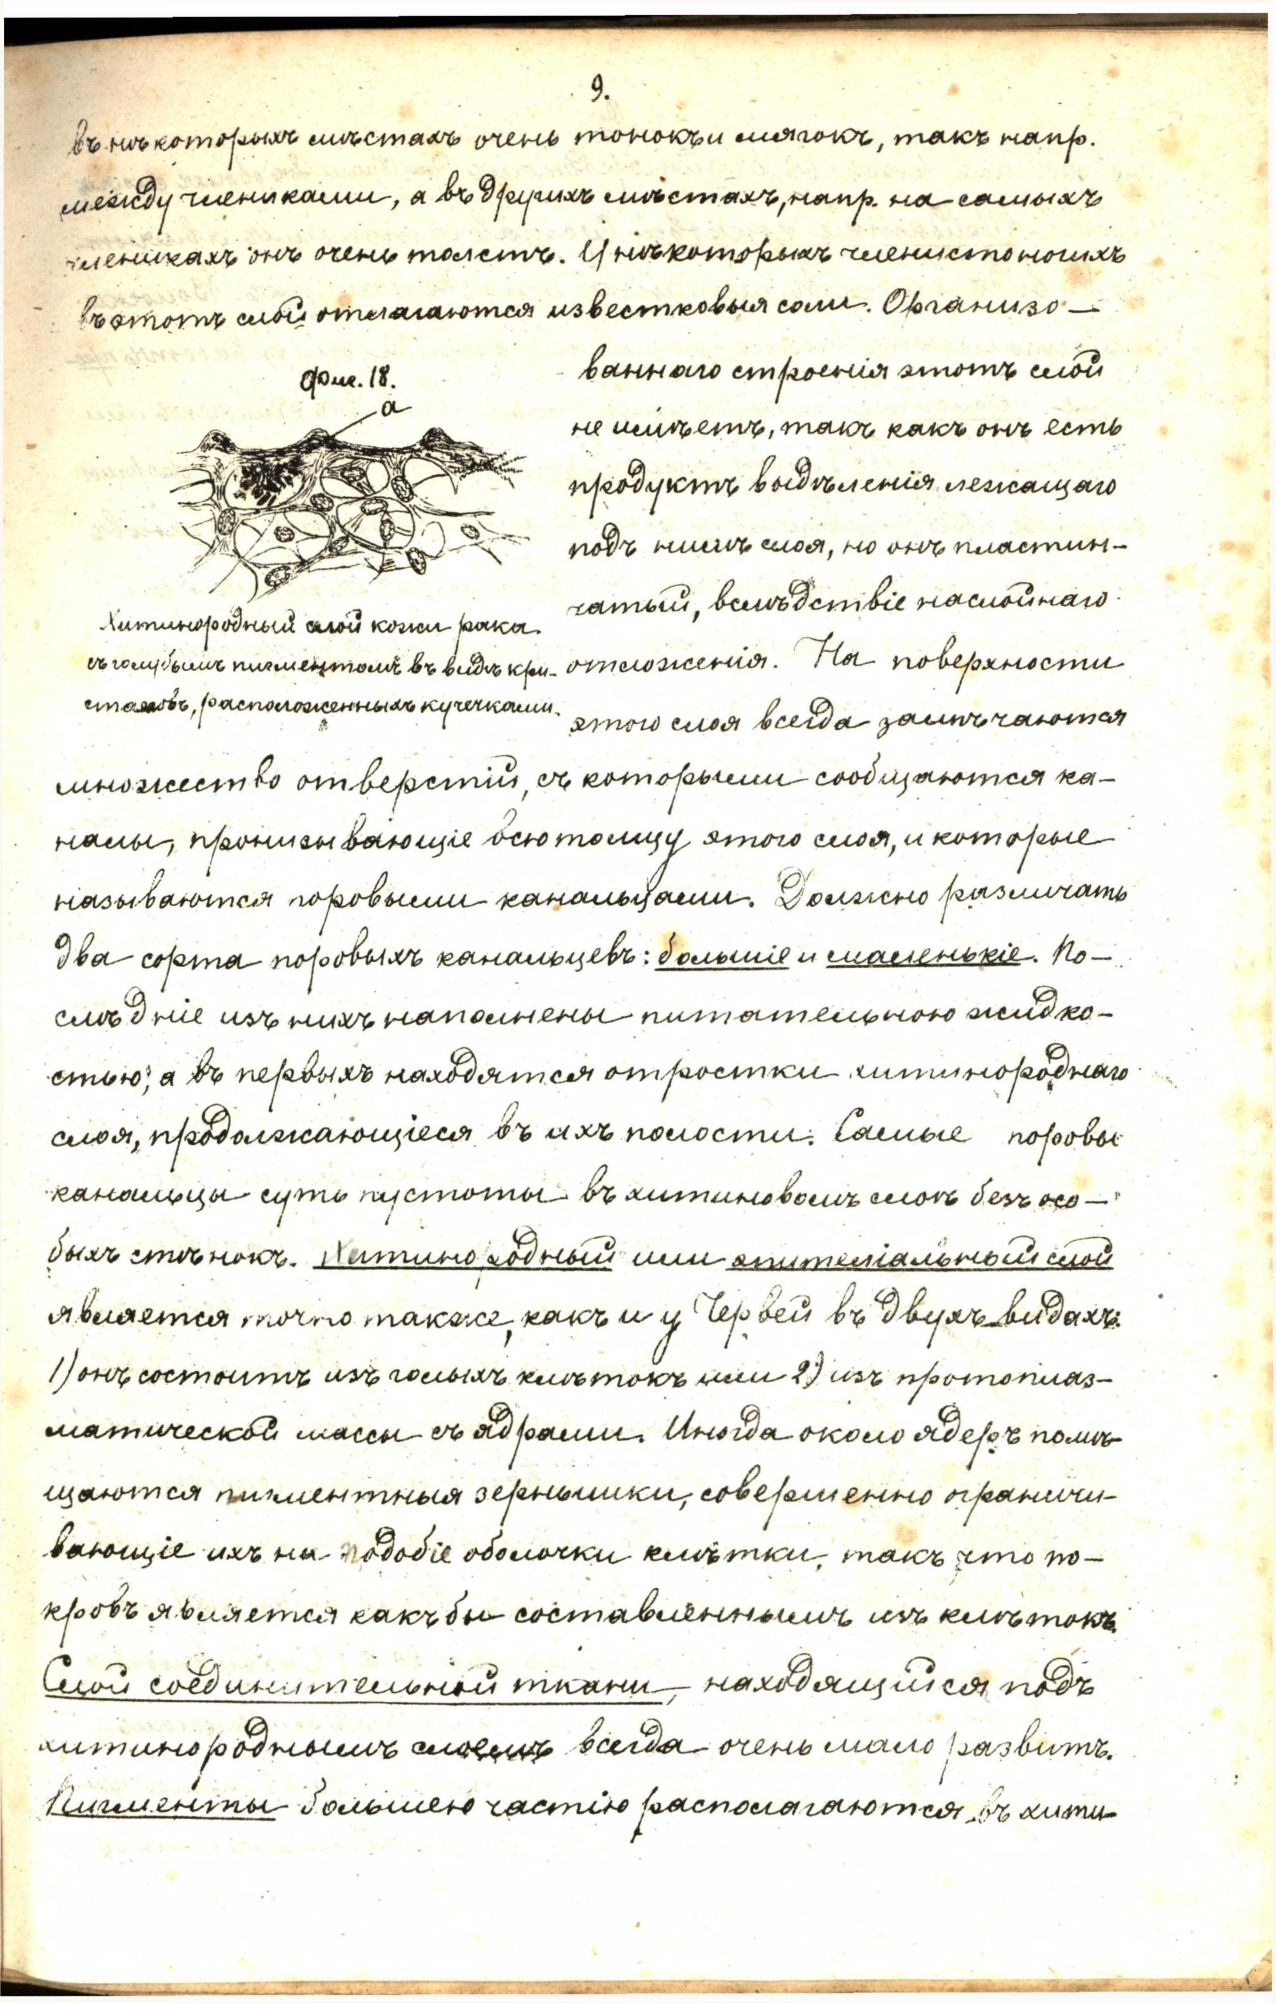 9.
въ нѣкоторыхъ мѣстахъ очень тонокъ и мягокъ, такъ напр.
между члениками, а въ другихъ мѣстахъ, напр. на самыхъ
членикахъ онъ очень толстъ. У нѣкоторыхъ членистоногихъ
въ этотъ слой отлагаются известковыя соли. Организо-
Фиг. 18.
а
Хитинородный слой кожи рака
съ голубымъ пигментомъ въ видѣ кри-
сталловъ, расположенныхъ кучечками.
ваннаго строенія этотъ слой
не имѣетъ, такъ какъ онъ есть
продуктъ выдѣленія лежащаго
подъ нимъ слоя, но онъ пластин-
чатый, вслѣдствіе наслойнаго
отложенія. На поверхности
этого слоя всегда замѣчаются
множество отверстій, съ которыми сообщаются ка-
налы, пронизывающіе всю толщу этого слоя, и которые
называются поровыми канальцами. Должно различать
два сорта поровыхъ канальцевъ: большіе и маленькіе. По-
слѣдніе изъ нихъ наполнены питательною жидко-
стью, а въ первыхъ находятся отростки хитинороднаго
слоя, продолжающіеся въ ихъ полости. Самые поровые
канальцы суть пустоты въ хитиновомъ слоѣ безъ осо-
быхъ стѣнокъ. Хитинородный или эпителіальный слой
является точно также, какъ и у Червей въ двухъ видахъ:
1) онъ состоитъ изъ голыхъ клѣтокъ или 2) изъ протоплаз-
матической массы съ ядрами. Иногда около ядеръ помѣ-
щаются пигментныя зернышки, совершенно ограничи-
вающіе ихъ на подобіе оболочки клѣтки, такъ что по-
кровъ является какъ бы составленнымъ изъ клѣтокъ.
Слой соединительной ткани, находящійся подъ
хитинороднымъ слоемъ всегда очень мало развитъ.
Пигменты большею частію располагаются въ хити-